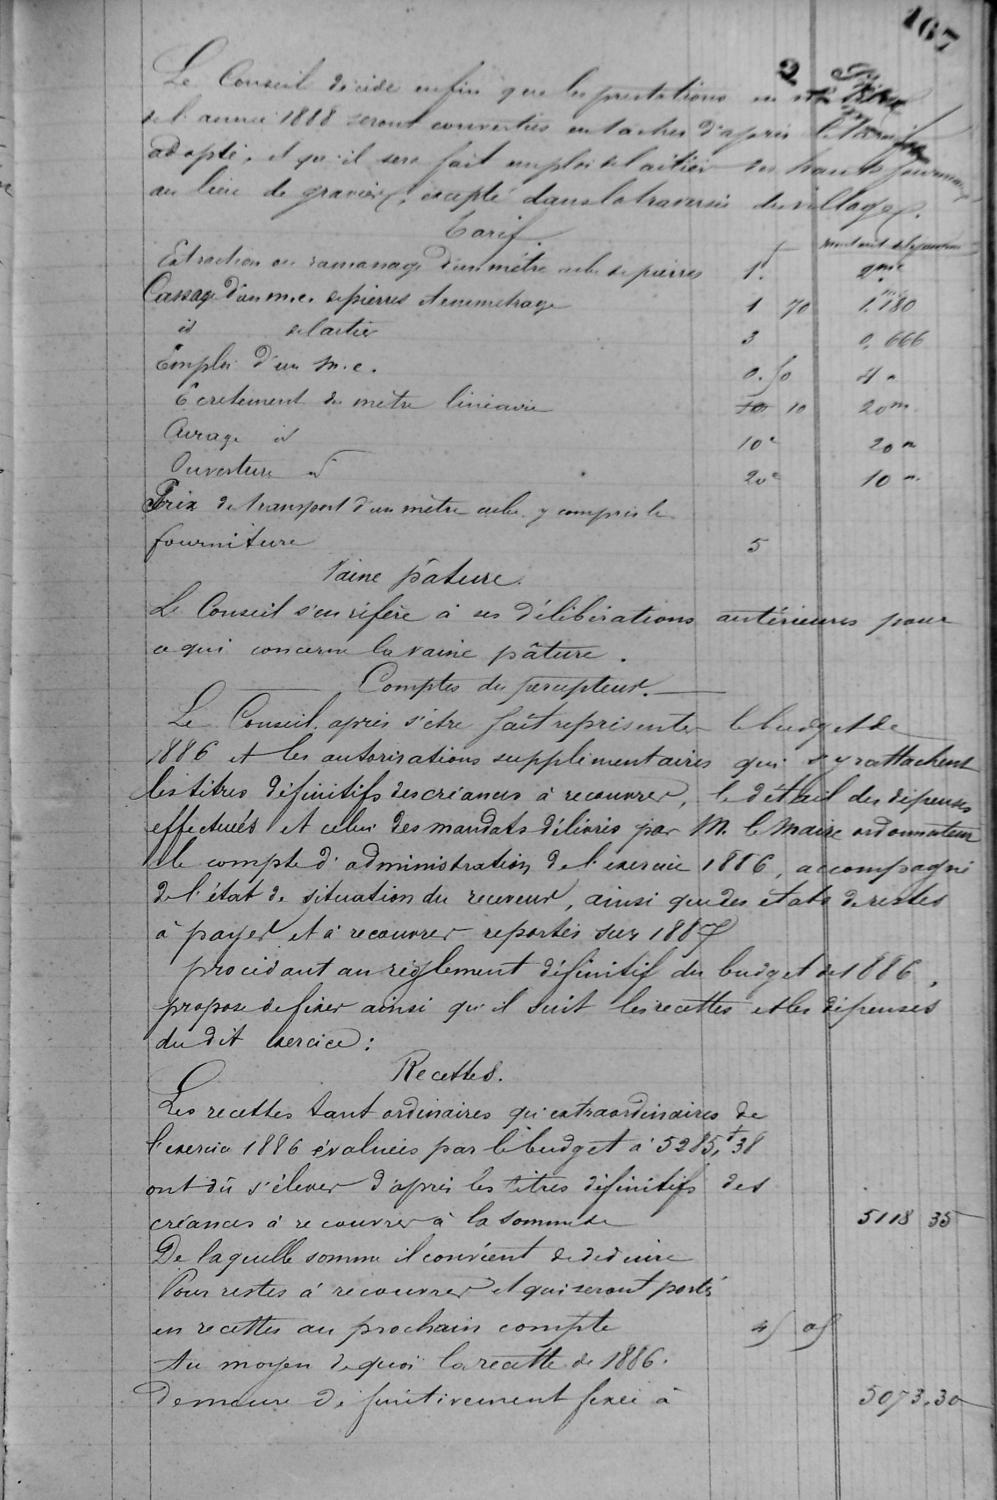 167
Le Conseil décide enfin que les prestations en
de l'année 1888 seront converties en tâches d'après le tarif
adopté, et qu'il sera fait emploi de laitier des hauts fourneaux
au lieu de gravier, excepté dans la traversée du village.
Tarif.
Extraction ou ramassage d'un mètre cube de pierres 1.f 2 mc
Cassage d'un m.c. de pierres et emmétrage 1 70 1,180
id de laitier 3 0,666
Emploi d'un m.c. 0.50 4 "
Ecrêtement du mètre linéaire 10 20m
Curage id 10c 20 m
Ouverture id 20c 10 m
Prix de transport d'un mètre cube y compris la
fourniture 5
Vaine pâture.
Le Conseil s'en réfère à ses délibérations antérieures pour
ce qui concerne la vaine pâture.
Comptes du percepteur.
Le Conseil, après s'être fait représenter le budget de
1886 et les autorisations supplémentaires qui s'y rattachent
les titres définitifs des créances à recouvrer, le détail des dépenses
effectuées et celui des mandats délivrés par M. le Maire ordonnateur
et le compte d'administration de l'exercice 1886, accompagné
de l'état de situation du receveur, ainsi que des états de restes
à payer et à recouvrer reportés sur 1887
procédant au règlement définitif du budget de 1886,
propose de fixer ainsi qu'il suit les recettes et les dépenses
du dit exercice :
Recettes.
Les recettes tant ordinaires qu'extraordinaires de
l'exercice 1886 évaluées par le budget à 5285,f38
ont dû s'élever d'après les titres définitifs des
créances à recouvrer à la somme de 5118 35
De laquelle somme il convient de déduire
Pour restes à recouvrer et qui seront portés
en recettes au prochain compte 45 05
Au moyen de quoi la recette de 1886.
demeure définitivement fixée à 5073.30